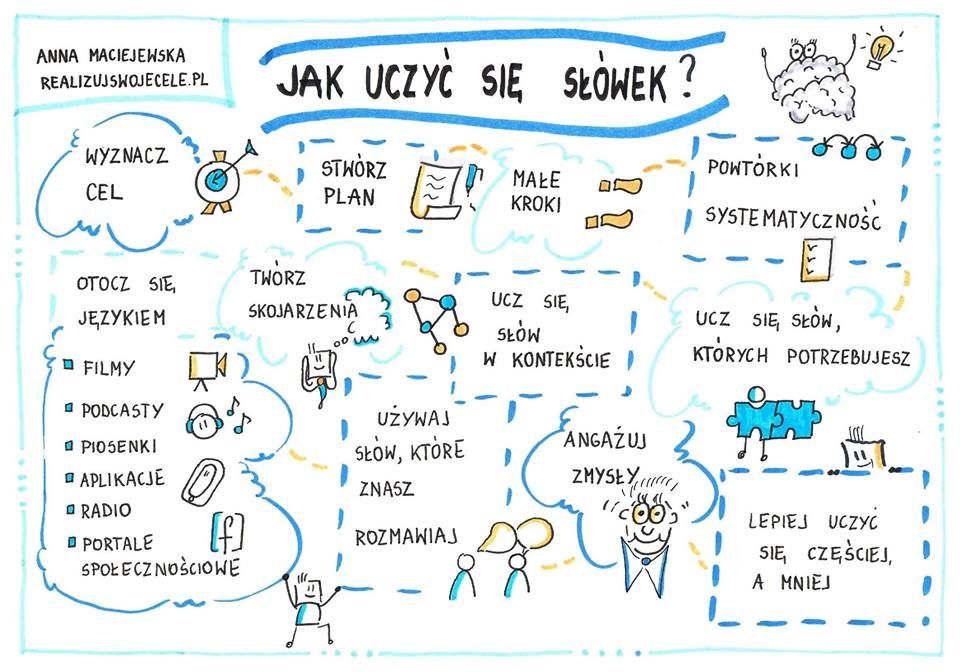 ANNA MACIEJEWSKA
REALIZUJSWOJECELE.PL
JAK UCZYĆ SIĘ SŁÓWEK?
WYZNACZ
CEL
STWÓRZ
PLAN
MAŁE
KROKI
POWTÓRKI
SYSTEMATYCZNOŚĆ
OTOCZ SIĘ
JĘZYKIEM
FILMY
PODCASTY
PIOSENKI
APLIKACJE
RADIO
PORTALE
SPOŁECZNOŚCIOWE
f
TWÓRZ
SKOJARZENIA
UCZ SIĘ
SŁÓW
W KONTEKŚCIE
UCZ SIĘ SŁÓW,
KTÓRYCH POTRZEBUJESZ
UŻYWAJ
SŁÓW, KTÓRE
ZNASZ
ROZMAWIAJ
ANGAŻUJ
ZMYSŁY
LEPIEJ UCZYĆ
SIĘ CZĘŚCIEJ,
A MNIEJ